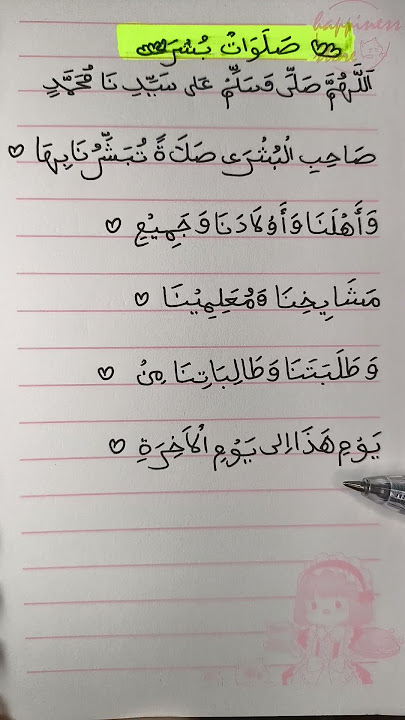 happiness
صَلَوَاتْ بُشْرَى
اَللّٰهُمَّ صَلِّى وَسَلِّمْ عَلى سَيِّدِ نَا مُحَمَّدٍ
صَاحِبِ الْبُشْرَى صَلَاةً تُبَشِّرُنَا بِهَا ♡
وَأَهْلَنَا وَأَوْلَادَنَا وَجَمِيْعِ ♡
مَشَايِخِنَا وَمُعَلِمِيْنَا ♡
وَطَلَبَتَنَا وَطَالِبَاتِنَا مِنْ ♡
يَوْمِ هَذَا اِلى يَوْمِ الْاَخِرَةِ ♡